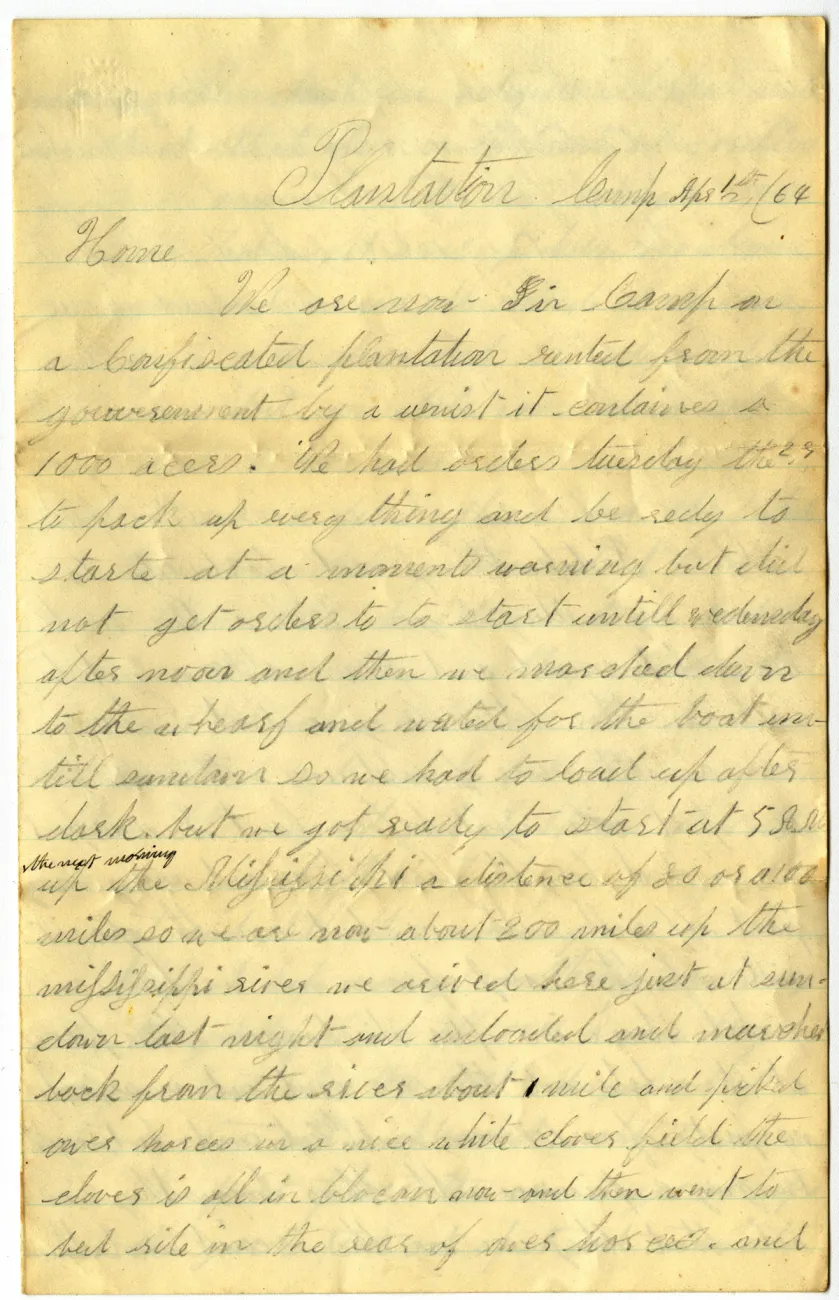 Plantaition Camp Apr 1st /64
Home
We are now in Camp on
a Confiscated plantation rented from the
gouverenment by a it containes a
1000 acers. We had orders tuesday the 29
to pack up every thing and be redy to
starte at a moments warning but did
not get orders to to start untill wedensday
after noon and then we marched down
to the whearf and wated for the boat un-
till sundown So we had to load up after
dark. but we got ready to start at 5 A.M
the next morning
up the Mississippi a distence of 80 or a 100
miles so we are now about 200 miles up the
mississippi river we arived here just at sun-
down last night and unloaded and marched
back from the river about 1 mile and picked
ower horces in a nice white clover field the
clover is all in bloom now and then went to
bed rite in the rear of ower horces. and